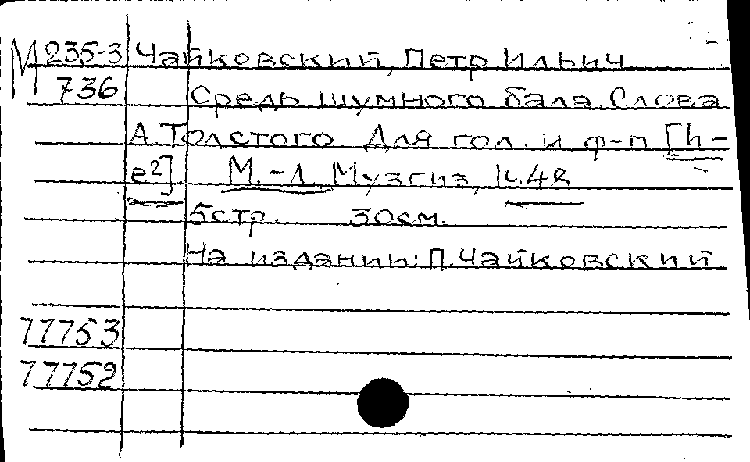 М 235-3 Чайковский, Петр Ильич
736 Средь шумного бала. Слова
А. Толстого Для гол. и ф-п [h-
e²]. М.-Л Музгиз,
5 стр. 30 см.
На издании: П. Чайковский
77753
77752